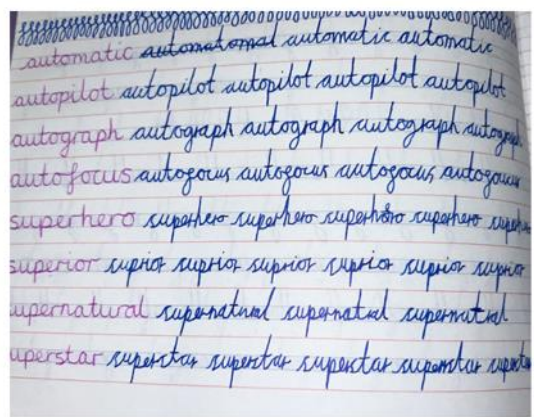 automatic automatomal automatic automatic
autopilot autopilot autopilot autopilot autopilot
autograph autograph autograph autograph autograph
autofocus autogocus autogocus autogocus autogocus
superhero superhero superhero superhero superhero
superior suprior suprior suprior suprior suprior suprior
upernatural supernatural supernatral supernatral
uperstar superstar superstar superstar superstar